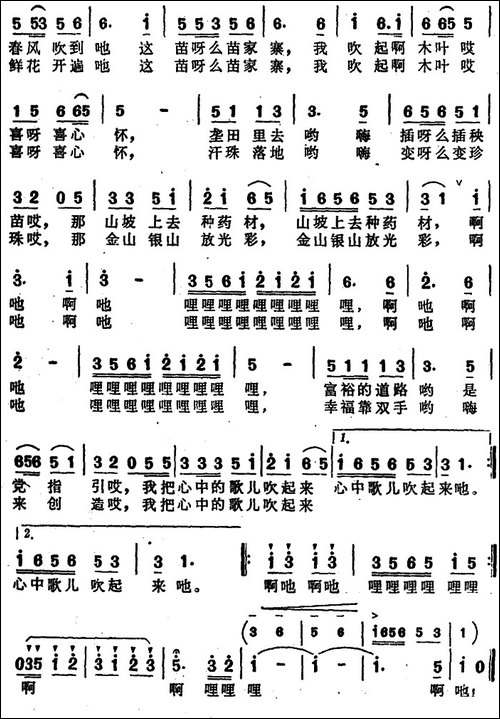 5 5 53 5 3 5 6 | 6. i | 5 5 5 3 5 6 | 6. i | i 6. i | 6 65 5 |
春风 吹到 吔 这 苗呀么苗家 寨, 我 吹起啊 木叶 哎
鲜花 开遍 吔 这 苗呀么苗家 寨, 我 吹起啊 木叶 哎
1 5 6 65 | 5 - | 5 1 1 3 | 3. 5 | 6 1 5 6 5 |
喜呀 喜心 怀, 垄田 里去 哟 嗨 插呀么插秧
喜呀 喜心 怀, 汗珠 落地 哟 嗨 变呀么变珍
3 2 0 5 | 3 3 5 i | 2 i 6 5 | i 6 5 6 5 3 | 3 1 v i |
苗哎, 那 山坡 上去 种药 材, 山坡上去种药 材, 啊
珠哎, 那 金山 银山 放光 彩, 金山银山放光 彩, 啊
3. i | 3 - | 3 5 6 i 2 i 2 i | 6. 6 | 2. 6 |
吔 啊 吔 哩哩哩哩哩哩哩哩 哩, 啊 吔 啊
吔 啊 吔 哩哩哩哩哩哩哩哩 哩, 啊 吔 啊
2 - | 3 5 6 i 2 i 2 i | 5 - | 5 1 1 1 1 3 | 3. 5 |
吔 哩哩哩哩哩哩哩哩 哩, 富裕的道路 哟 是
吔 哩哩哩哩哩哩哩哩 哩, 幸福靠双手 哟 嗨
656 5 1 | 3 2 0 5 5 | 3 3 3 3 5 i | 2 i 6 5 | 1. i 6 5 6 5 3 | 3 1. :|
党 指 引哎, 我把 心中的歌儿 吹起来 心中歌儿吹起来吔。
来 创 造哎, 我把 心中的歌儿 吹起来
2. i 6 5 6 5 3 | 3 1. |: i 3 i 3 | 3 5 6 5 i 5 :|
心中歌儿 吹起 来 吔。 啊吔 啊吔 哩哩哩哩 哩哩
(3 6 | 5 6 | i656 5 3 | 1)
035 i 2 | 3 i 2 3 | 5. 3 2 | i - | i - | i. 5 | i 0 |
啊 啊 哩哩 哩 啊 吔,